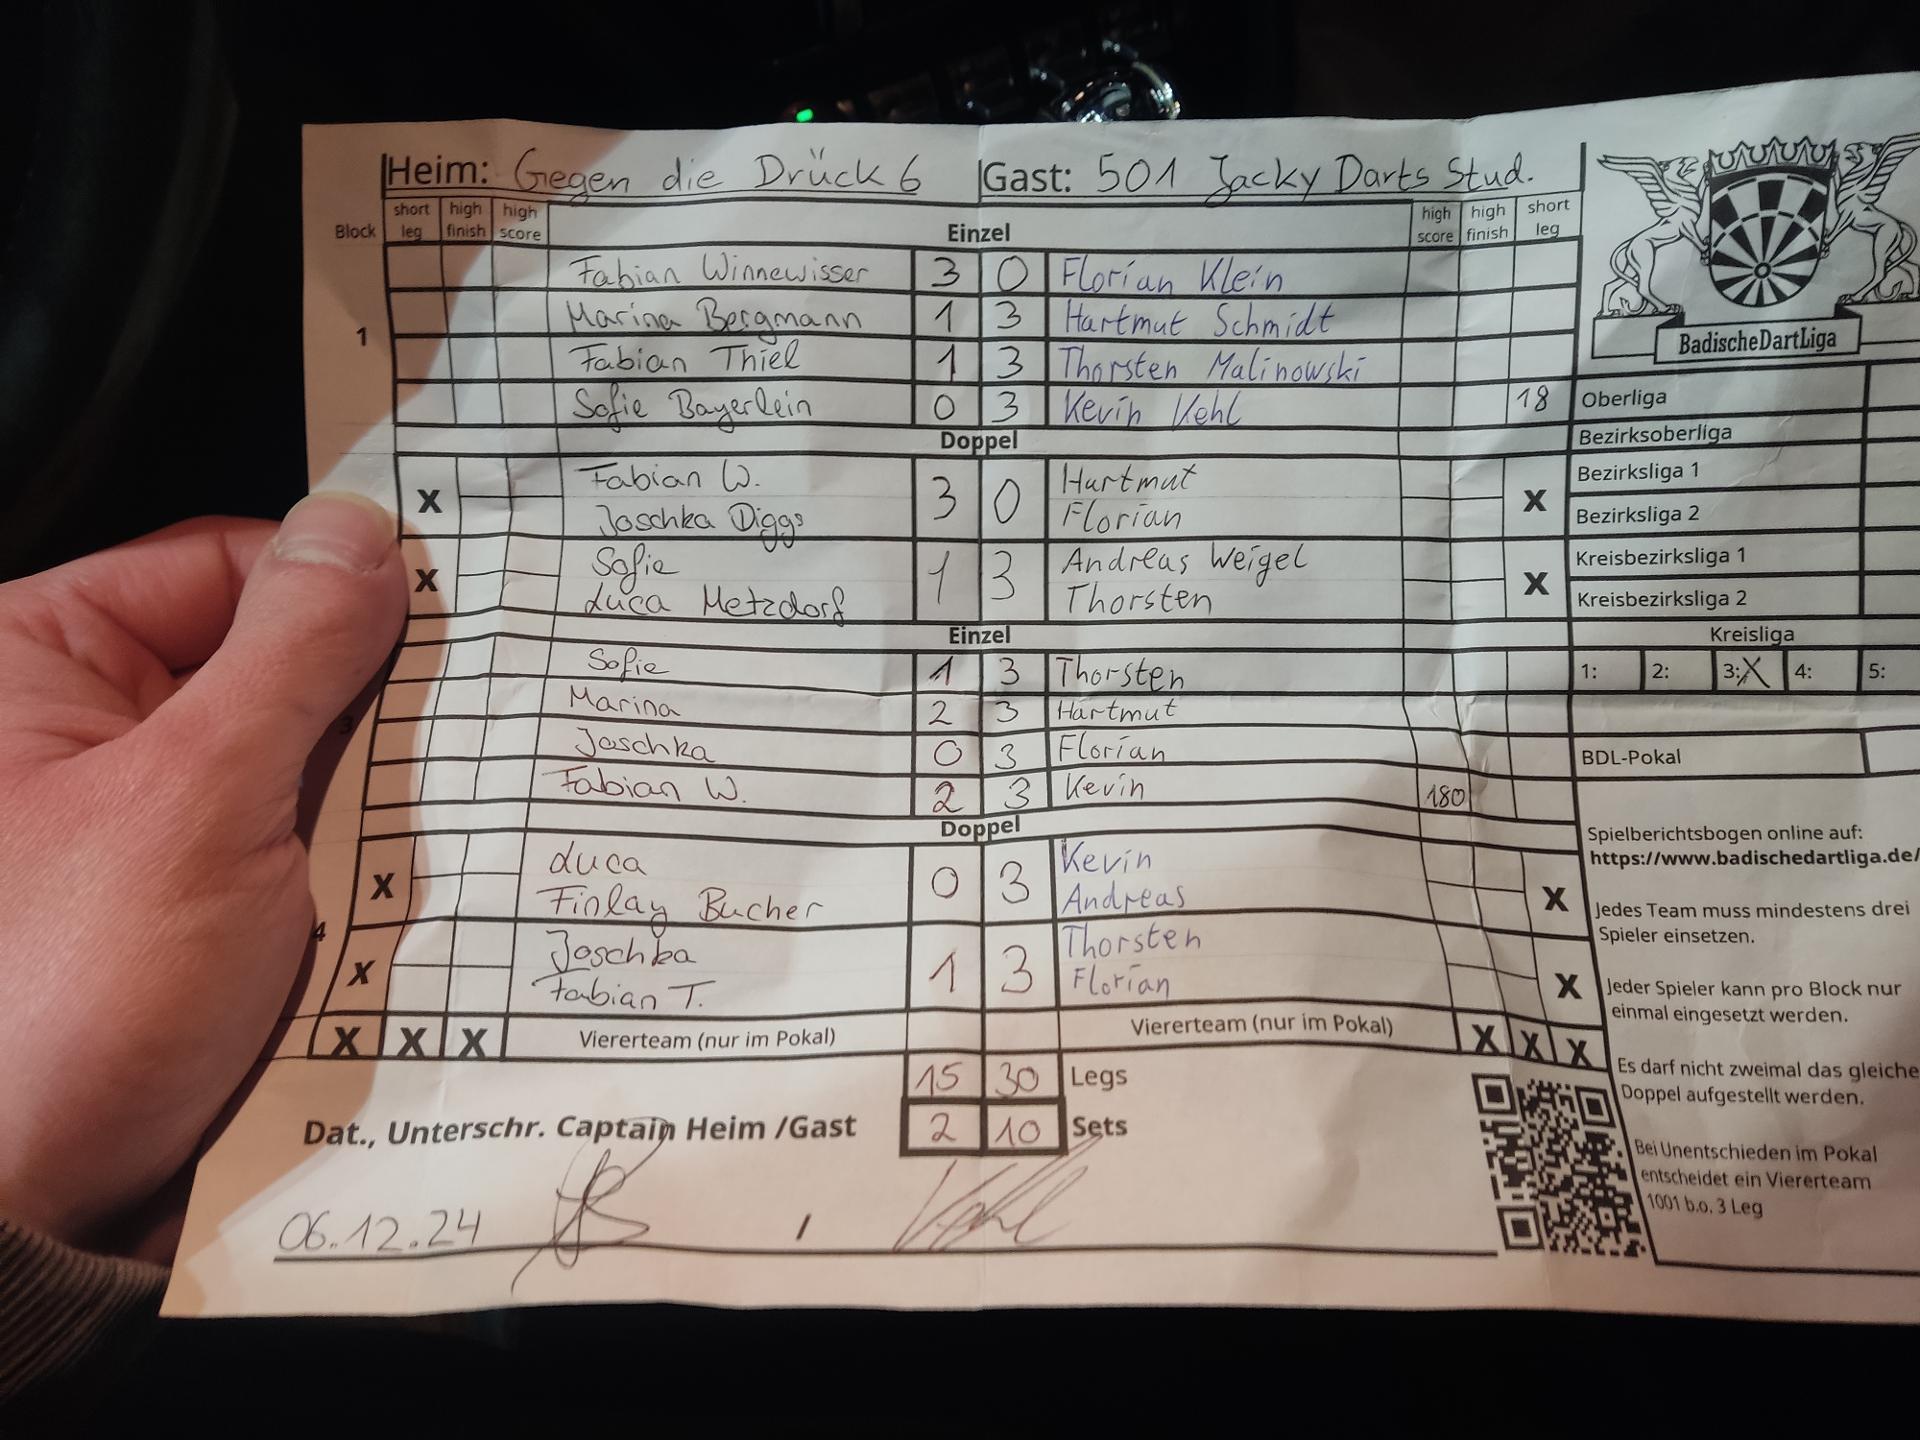 Heim: Gegen die Drück 6 Gast: 501 Jacky Darts Stud.
Block short leg high finish high score Einzel high score high finish short leg
Fabian Winnewisser 3 0 Florian Klein
1 Marina Bergmann 1 3 Hartmut Schmidt
Fabian Thiel 1 3 Thorsten Malinowski
Sofie Bayerlein 0 3 Kevin Kehl 18
Doppel
X Fabian W. 3 0 Hartmut X
Joschka Diggs Florian
X Sofie 1 3 Andreas Weigel X
Luca Metzdorf Thorsten
Einzel
Sofie 1 3 Thorsten
Marina 2 3 Hartmut
3 Joschka 0 3 Florian
Fabian W. 2 3 Kevin 180
Doppel
X Luca 0 3 Kevin X
Finlay Bucher Andreas
4 X Joschka 1 3 Thorsten X
Fabian T. Florian
X X X Viererteam (nur im Pokal) Viererteam (nur im Pokal) X X X
15 30 Legs
Dat., Unterschr. Captain Heim /Gast 2 10 Sets
06.12.24 / Kehl
BadischeDartLiga
Oberliga
Bezirksoberliga
Bezirksliga 1
Bezirksliga 2
Kreisbezirksliga 1
Kreisbezirksliga 2
Kreisliga
1: 2: 3: X 4: 5:
BDL-Pokal
Spielberichtsbogen online auf:
https://www.badischedartliga.de/
Jedes Team muss mindestens drei
Spieler einsetzen.
Jeder Spieler kann pro Block nur
einmal eingesetzt werden.
Es darf nicht zweimal das gleiche
Doppel aufgestellt werden.
Bei Unentschieden im Pokal
entscheidet ein Viererteam
1001 b.o. 3 Leg